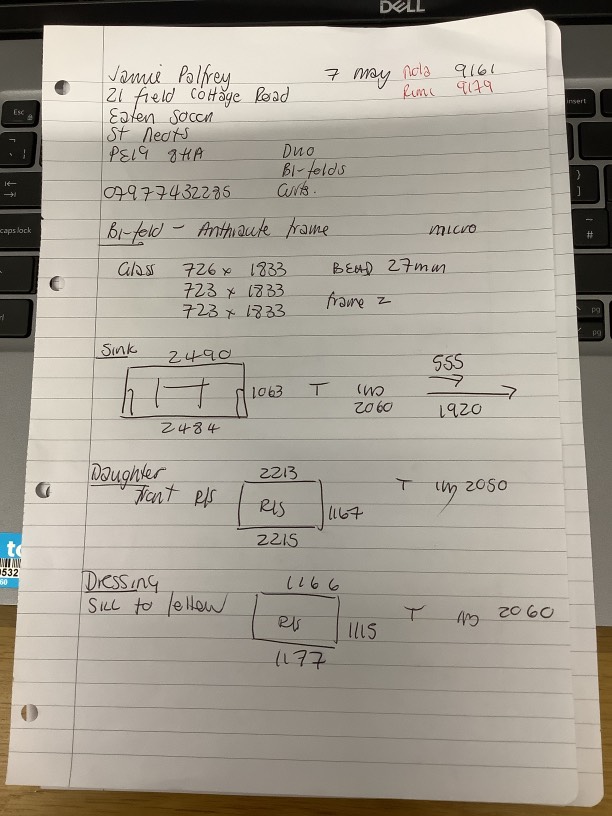 DELL
Jamie Palfrey 7 may Nola 9161
21 field Cottage Road Rimi 9179
Eaten Soccn
St Neots
PE19 8HA Duo
Bi-folds
07977432285 Curts.
Bi-fold - Anthracite frame micro
Glass 726 x 1833 BEAD 27mm
723 x 1833
723 x 1833 frame 2
Sink 2490
1063 T 2060
555
1920
2484
Daughter 2213
front R/S R/S 1167 T 2050
2215
Dressing 1166
Sill to R/S 1115 T 2060
1177